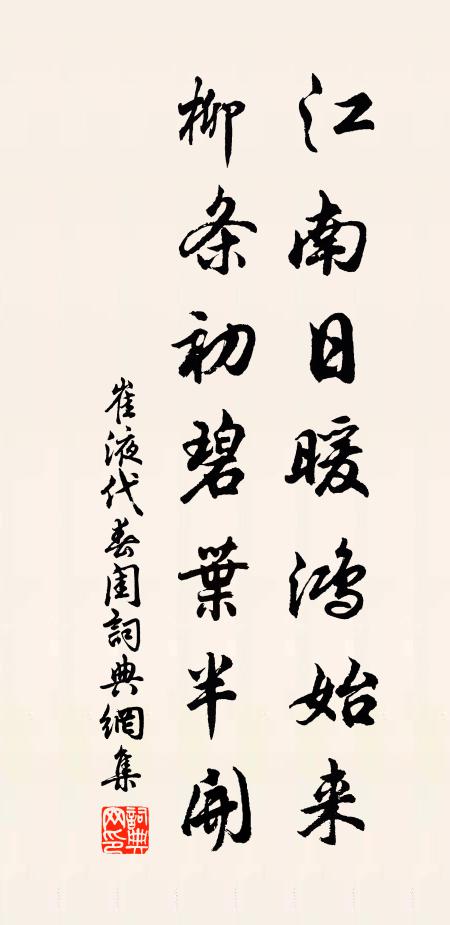 江南日暖鸿始来
柳条初碧葉半開
崔液代春闺詞典網集
詞典网印